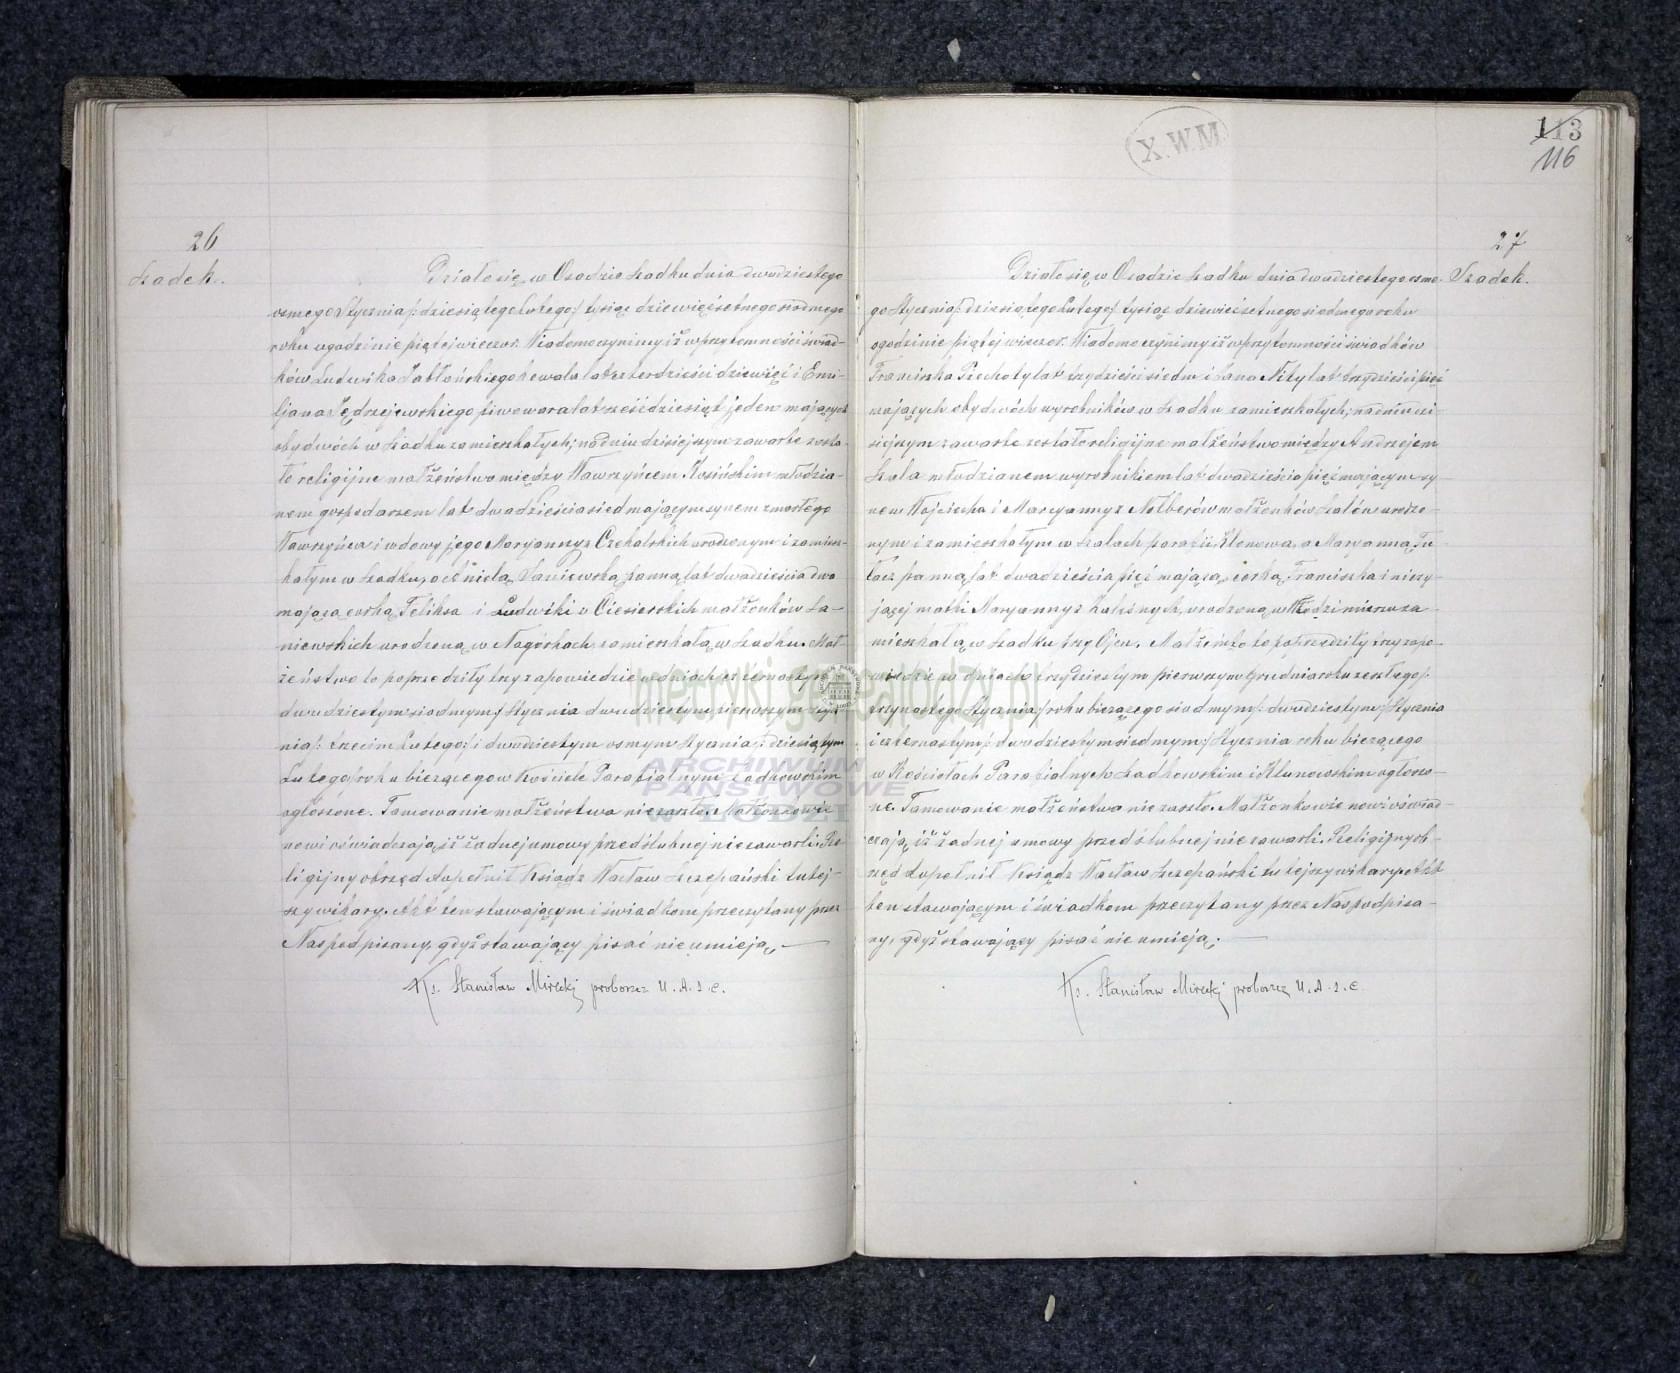 X.W.M.
113
116
26
Szadek.
Działo się w Osadzie Szadku dnia dwudziestego
osmego Stycznia /: dziesiątego Lutego / tysiąc dziewięćsetnego siódmego
roku o godzinie piątej wieczor. Wiadomo czynimy iż w przytomności świad-
ków Ludwika Jabłońskiego kowala lat czterdzieści dziewięć i Emi-
ljana Jędrzejewskiego piwowara lat sześćdziesiąt jeden mających
obydwóch w Szadku zamieszkałych; na dniu dzisiejszym zawarte zosta-
ło religijne małżeństwo między Wawrzyńcem Kosińskim młodzia-
nem gospodarzem lat dwadzieścia siedm mającym synem zmarłego
Wawrzyńca i wdowy jego Maryanny z Czekalskich urodzonym i zamiesz-
kałym w Szadku, a Janiewską panną lat dwadzieścia dwa
mającą córką Feliksa i Ludwiki z Ciesierskich małżonków Ja-
niewskich urodzoną w Nogórkach zamieszkałą w Szadku. Mał-
żeństwo to poprzedziły trzy zapowiedzie w dniach czternastym /:
dwudziestym siodmym / Stycznia dwudziestym pierwszym Stycz-
nia /: trzecim Lutego / i dwudziestym osmym Stycznia /: dziesiątym
Lutego / roku bieżącego w Kościele Parafialnym Szadkowskim
ogłoszone. Tamowanie małżeństwa nie zaszło. Małżonkowie
nowi oświadczają iż żadnej umowy przedślubnej nie zawarli. Re-
ligijny obrzęd dopełnił Ksiądz Wacław Szczepański tutej-
szy wikary. Akt ten stawającym i świadkom przeczytany przez
Nas podpisany, gdyż stawający pisać nie umieją.
Ks. Stanisław Mirecki proboszcz U. A. S. C.
27
Szadek.
Działo się w Osadzie Szadku dnia dwudziestego osme-
go Stycznia /: dziesiątego Lutego / tysiąc dziewięćsetnego siodmego roku
o godzinie piątej wieczor. Wiadomo czynimy iż w przytomności świadków
Franciszka Piechoty lat trzydzieści siedm i Jana Nity lat trzydzieści pięć
mających obydwóch wyrobników w Szadku zamieszkałych; na dniu dzi-
siejszym zawarte zostało religijne małżeństwo między Andrzejem
Szala młodzianem wyrobnikiem lat dwadzieścia pięć mającym sy-
nem Wojciecha i Maryanny z Nolberów małżonków Szalów urodzo-
nym i zamieszkałym w Szalach parafii Klonowa, a Maryanną Tu-
łacz panną lat dwadzieścia pięć mającą córką Franciszka i nieży-
jącej matki Maryanny z urodzoną w Włodzimierzu za-
mieszkałą w Szadku przy Ojcu. Małżeństwo to poprzedziły trzy zapo-
wiedzie w dniach trzydziestym pierwszym Grudnia roku zeszłego /:
trzynastego Stycznia / roku bieżącego siodmym /: dwudziestym / Stycznia
i czternastym /: dwudziestym siedmym / Stycznia roku bieżącego
w Kościołach Parafialnych Szadkowskim i Klonowskim ogłoszo-
ne. Tamowanie małżeństwa nie zaszło. Małżonkowie nowi oświad-
czają, iż żadnej umowy przedślubnej nie zawarli. Religijny ob-
rzęd dopełnił Ksiądz Wacław Szczepański tutejszy wikary. Akt
ten stawającym i świadkom przeczytany przez Nas podpisa-
ny, gdyż stawający pisać nie umieją.
Ks. Stanisław Mirecki proboszcz U. A. S. C.
metryki.genealodzy.pl
ARCHIWUM
PAŃSTWOWE
W ŁODZI